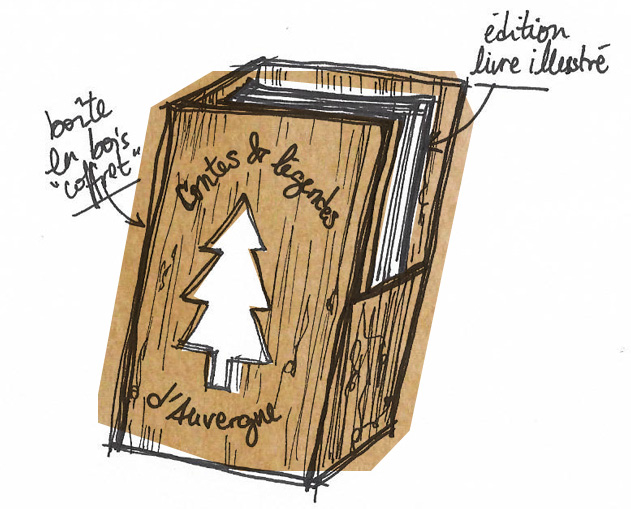 édition
livre illustré
boîte
en bois
"coffret"
Contes & légendes
d'Auvergne